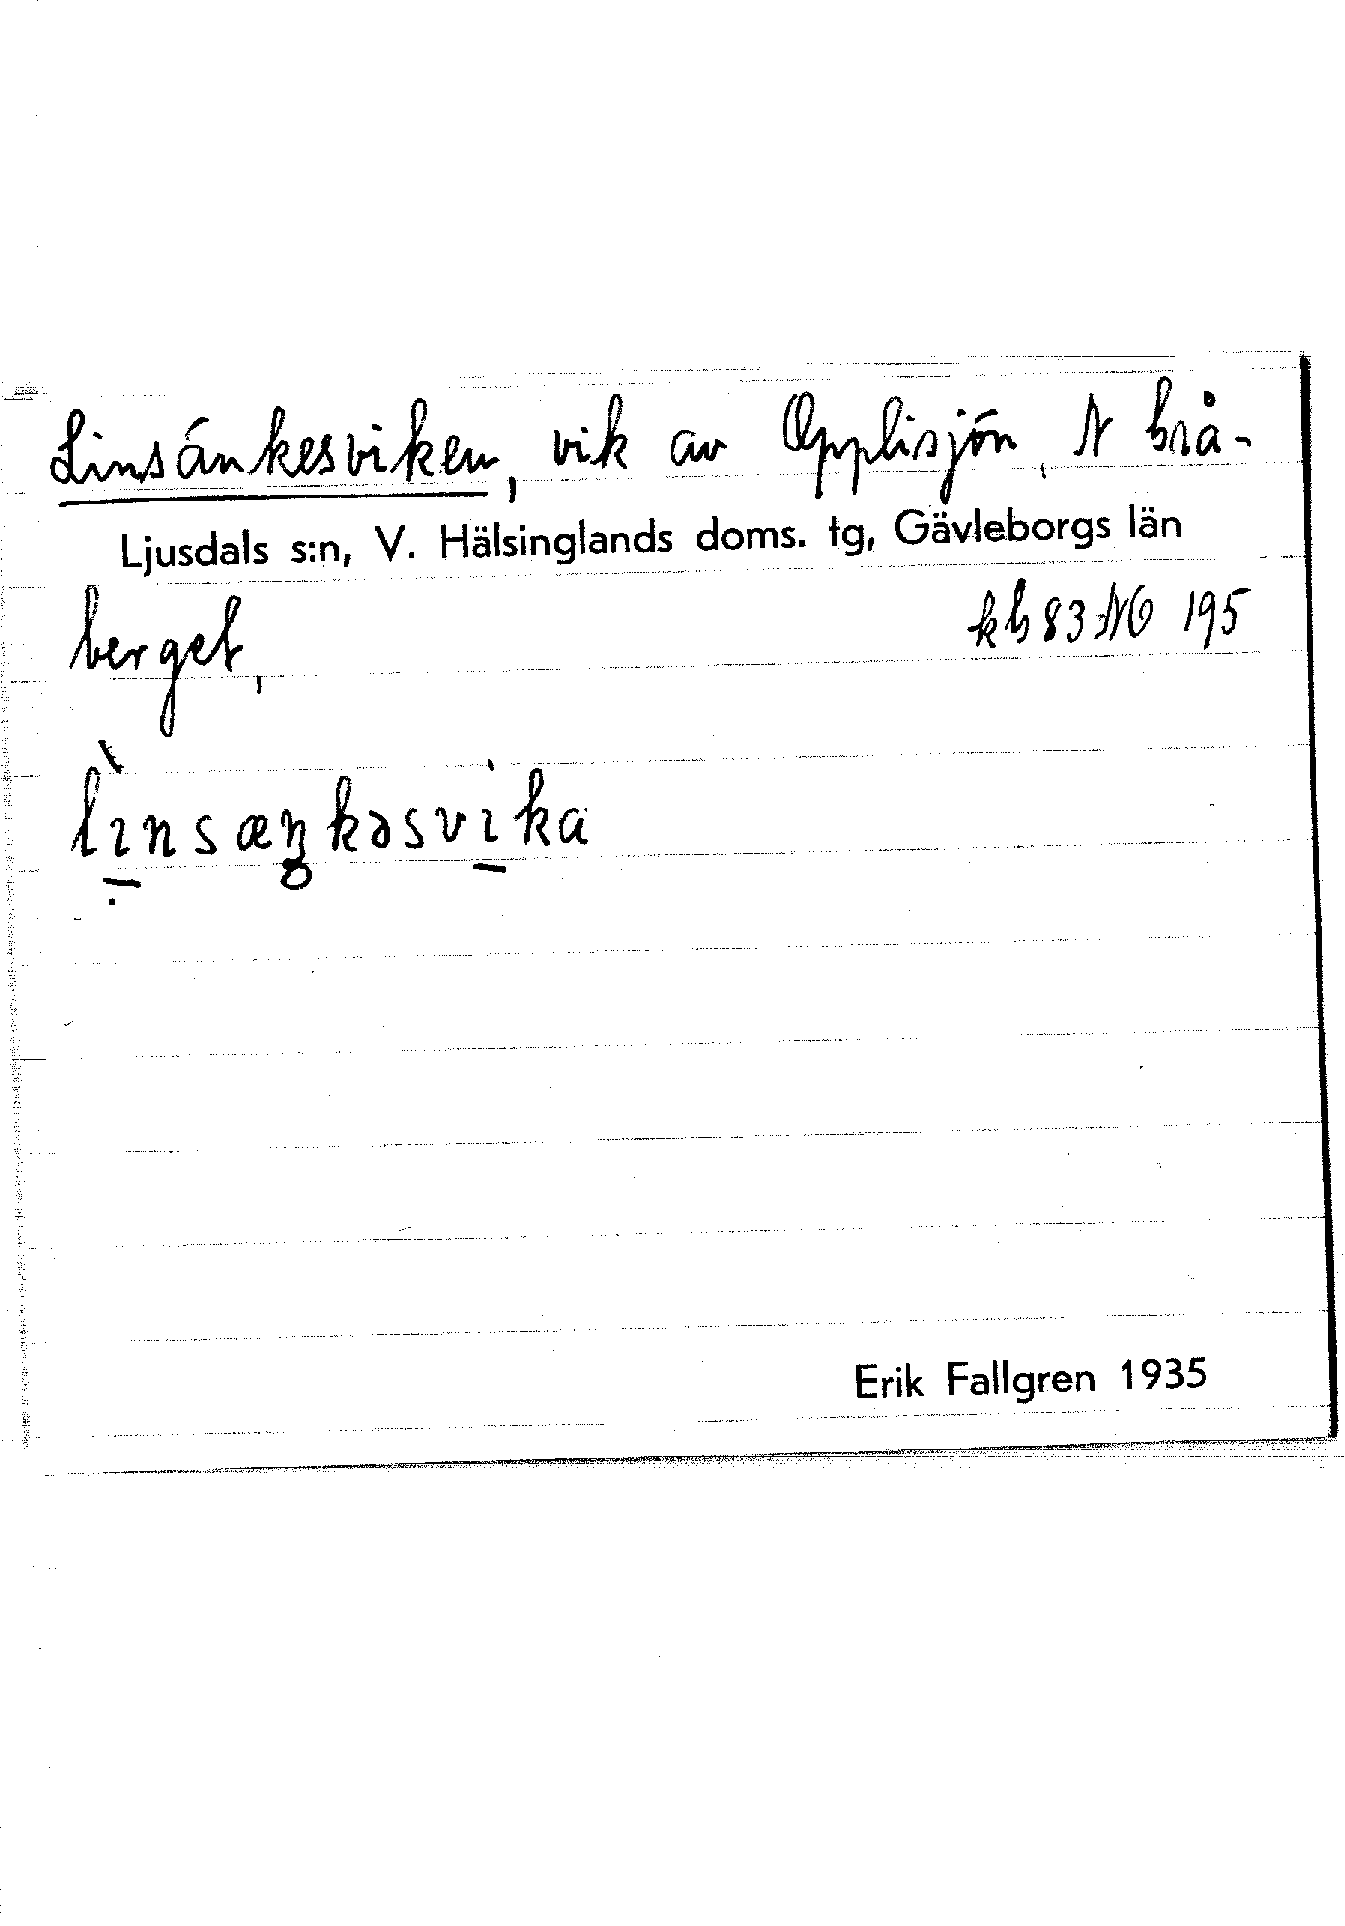 Linsänkesviken, vik av Opplisjön, N brå-
Ljusdals s:n, V. Hälsinglands doms. tg, Gävleborgs län
berget, kb 83 NO 195
lìnsæŋkəsvika
Erik Fallgren 1935